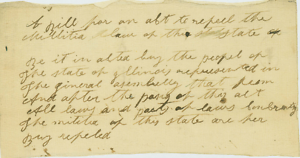 A bill for an act to repeel the
Militia law of this State
Be it in alted by the pepel of
the state of Illinois represented in
the general assembly that from
And after the pasig of this act
All laws and parts of laws
the militia of this state are her
by repeled